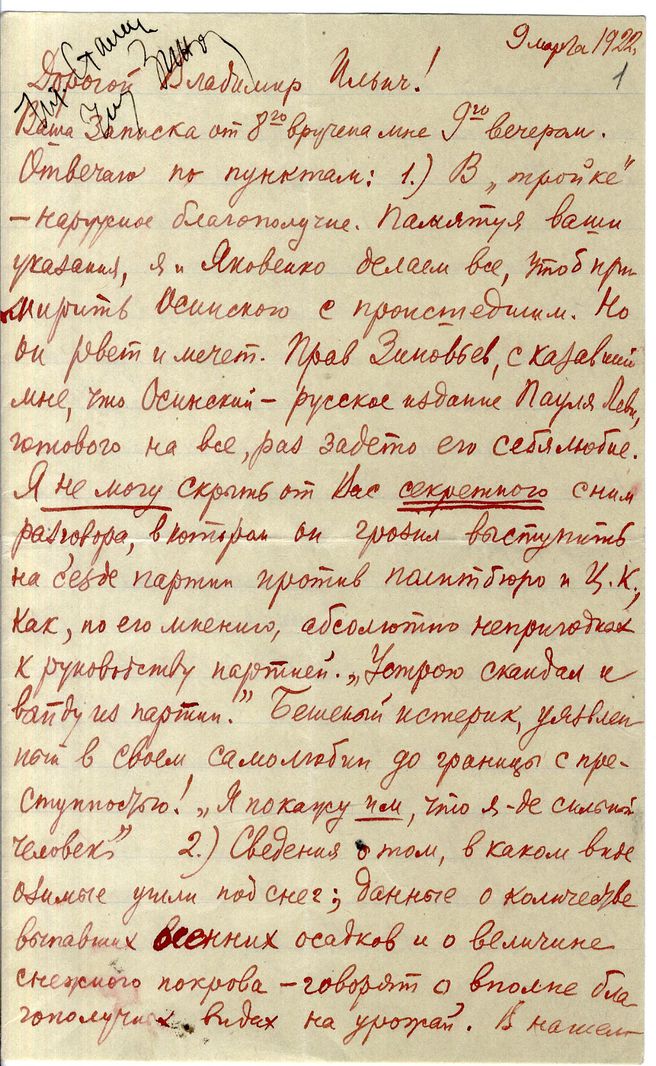 9 марта 1922.
1
Дорогой Владимир Ильич!
Ваша записка от 8го вручена мне 9го вечером.
Отвечаю по пунктам: 1.) В „тройке"
– наружное благополучие. Памятуя ваши
указания, я и Яковенко делаем все, чтоб при
мирить Осинского с происшедшим. Но
он рвет и мечет. Прав Зиновьев, сказавший
мне, что Осинский – русское издание Пауля Леви,
готового на все, раз задето его себялюбие.
Я не могу скрыть от Вас секретного с ним
разговора, в котором он грозил выступить
на сезде партии против политбюро и Ц.К.,
как, по его мнению, абсолютно непригодных
к руководству партией. „Устрою скандал и
выйду из партии." Бешеный истерик, уязвлен
ный в своем самолюбии до границы с пре-
ступностью! „Я покажу им, что я-де сильный
человек" 2.) Сведения о том, в каком виде
озимые ушли под снег; данные о количестве
выпавших осенних осадков и о величине
снежного покрова – говорят о вполне бла
гополучных видах на урожай. В нашем